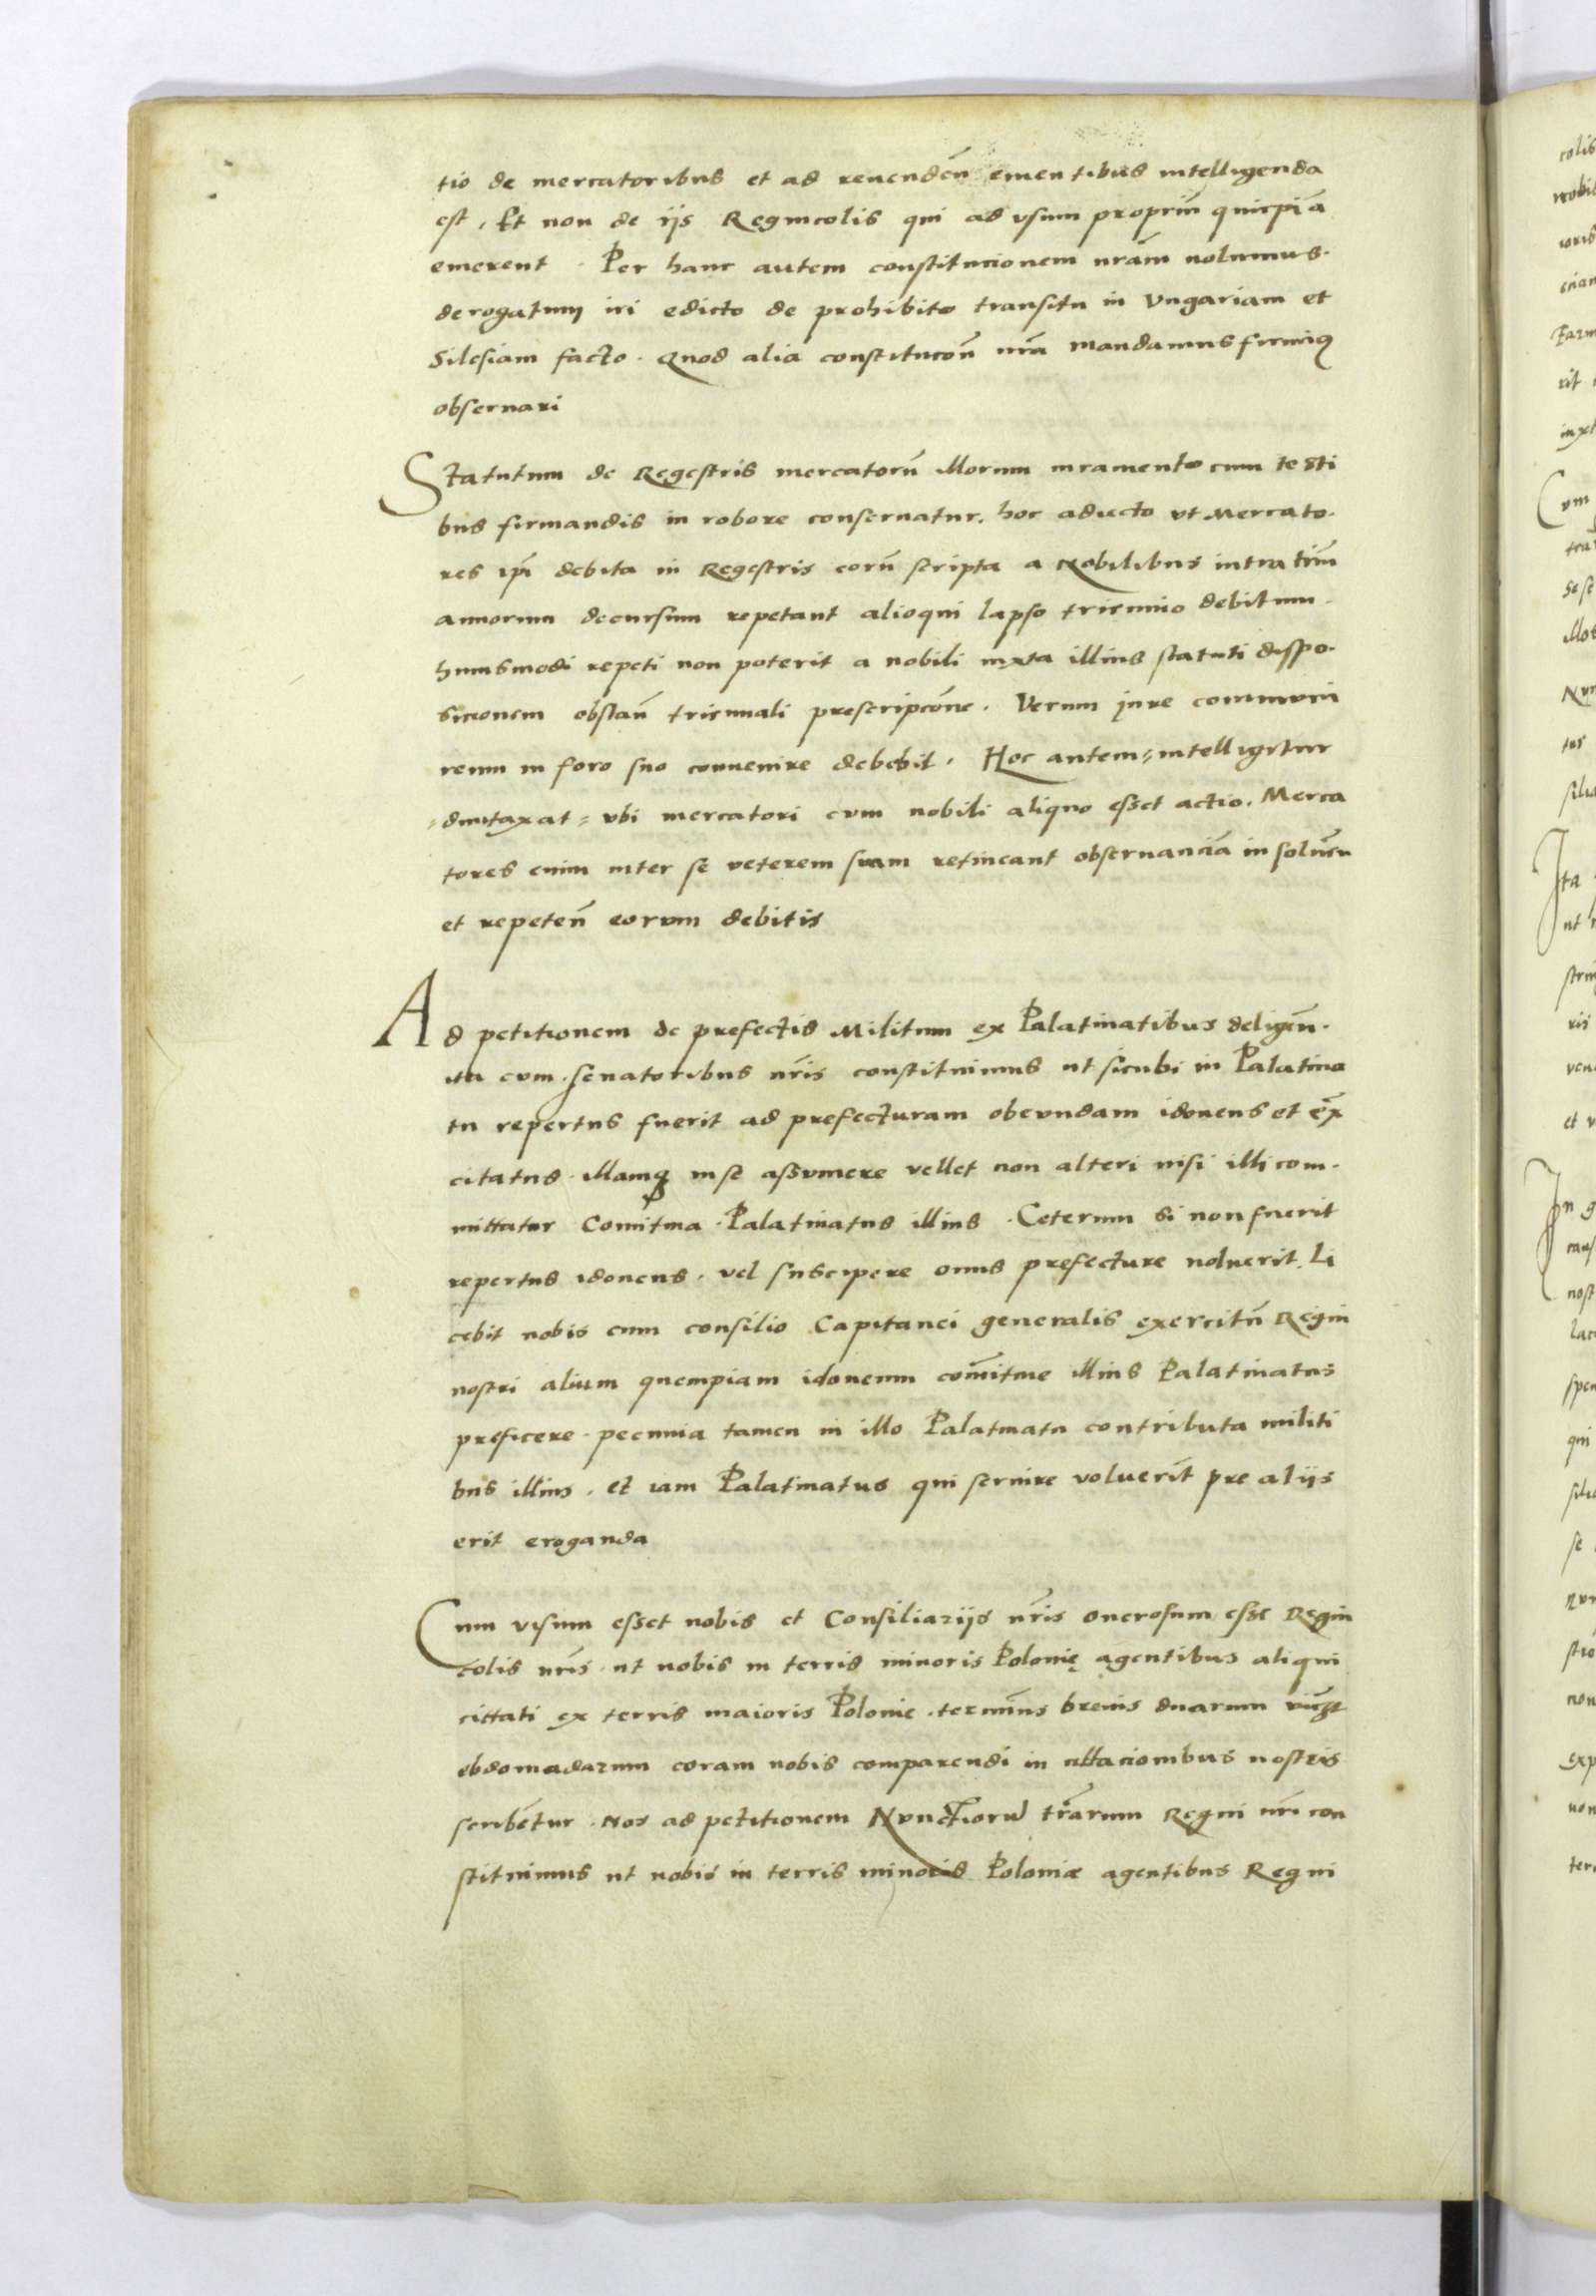 tio de mercatoribus et ad reuendeñ ementibus intelligenda
est, Et non de ijs Regnicolis qui ad vsum propriũ quicpiã
emerent. Per hanc autem constitucionem nrãm nolumus.
derogatum iri edicto de prohibito transitu in Vngariam et
Silesiam facto. Quod alia constitucoñ nrã mandamus firmiq
obseruari
Statutum de Regestris mercatorũ illorum iuramento cum testi
bus firmandis in robore conseruatur, hoc adiecto vt Mercato.
res ipĩ debita in Regestris eorũ scripta a Nobilibus intra triũ
annorum decursum repetant alioqui lapso triennio debitum.
huiusmodi repeti non poterit a nobili iuxta illius statuti dispo.
sicionem obstañ triennali prescripcõne. Verum jure communi
reum in foro suo conuenire debebit. Hoc autem intelligitur
dumtaxat vbi mercatori cum nobili aliquo esset actio. Merca
tores enim inter se veterem suam retineant obseruanciã in soluẽn
et repeteñ eorum debitis
Ad petitionem de prefectis Militum ex Palatinatibus deligeñ.
ita cum senatoribus nr̃is constituimus ut sicubi in Palatina
tu repertus fuerit ad prefecturam obeundam idoneus et ex̃
citatus. illamq in se assumere vellet non alteri nisi illi com.
mittatur Comitiua Palatinatus illius. Ceterum si non fuerit
repertus idoneus. vel suscipere onus prefecture noluerit. Li
cebit nobis cum consilio Capitanei generalis exercitũ Regni
nostri alium quempiam idoneum com̃itiue illius Palatinatus
preficere. pecunia tamen in illo Palatinatu contributa militi
bus illius. etiam Palatinatus qui seruire voluerĩt pre alijs
erit eroganda
Cum visum esset nobis et Consiliarijs nr̃is onerosum esse Regni
colis nr̃is. ut nobis in terris minoris Polonię agentibus aliqui
cittati ex terris maioris Polonie. termiñus breuis duarum
ebdomadarum coram nobis comparendi in cittacionibus nostris
scribẽtur. Nos ad petitionem Nunctiorũ tr̃arum Regni nr̃i con
stituimus ut nobis in terris minoris Poloniæ agentibus Regni